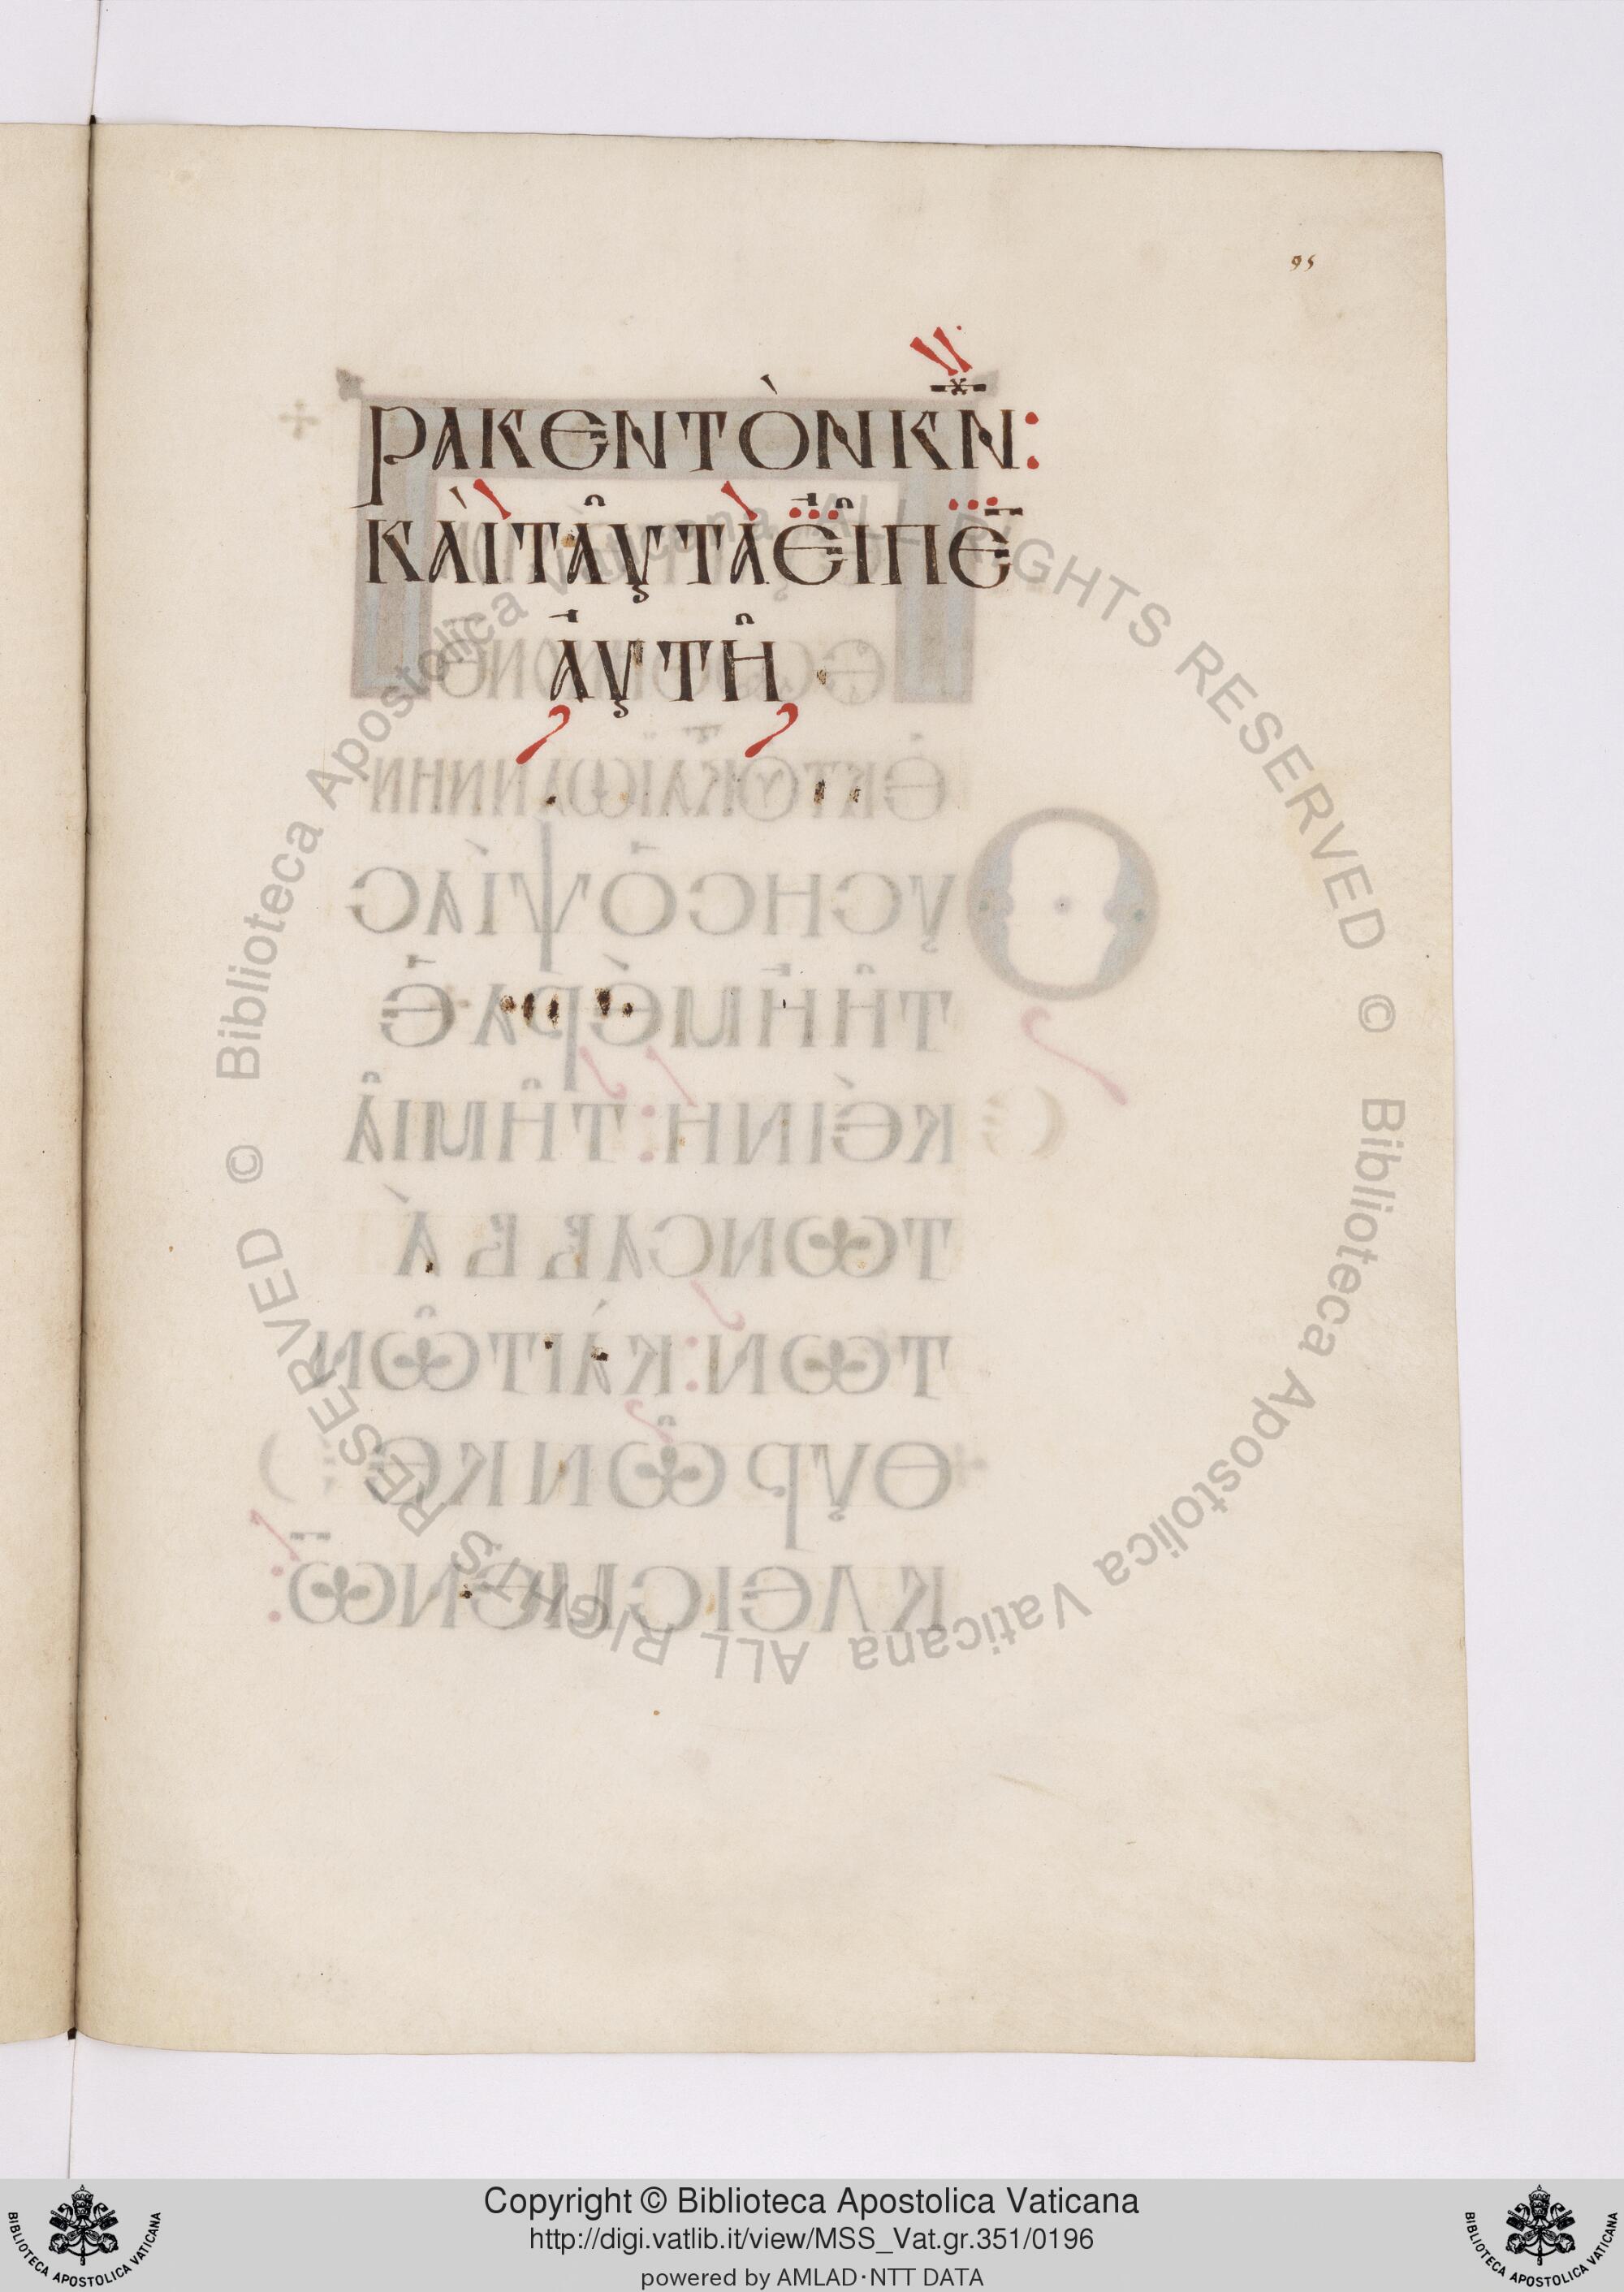 95
ρακεν τὸν κ̅ν̅:
καὶ ταῦτα εἶπεν
αὐτῆ.
Copyright © Biblioteca Apostolica Vaticana
http://digi.vatlib.it/view/MSS_Vat.gr.351/0196
powered by AMLAD·NTT DATA
© Biblioteca Apostolica Vaticana ALL RIGHTS RESERVED © Biblioteca Apostolica Vaticana ALL RIGHTS RESERVED
BIBLIOTECA APOSTOLICA VATICANA
BIBLIOTECA APOSTOLICA VATICANA